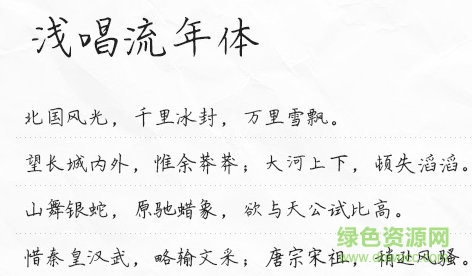 浅唱流年体
北国风光，千里冰封，万里雪飘。
望长城内外，惟余莽莽；大河上下，顿失滔滔。
山舞银蛇，原驰蜡象，欲与天公试比高。
惜秦皇汉武，略输文采；唐宗宋祖，稍逊风骚。
绿色资源网